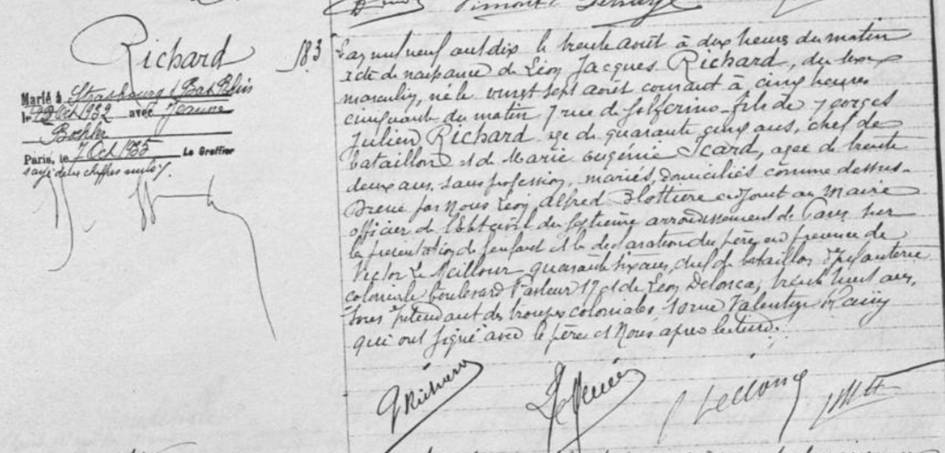 Richard
183
Marié à Strasbourg (Bas Rhin)
le Oct 1932 avec Jeanne
Boehler
Paris, le 7 Oct 1935 Le Greffier
rayé deux chiffres nuls
L'an mil neuf cent dix le trente août à dix heures du matin
acte de naissance de Léon Jacques Richard, du sexe
masculin, né le vingt sept août courant à cinq heures
cinquante du matin 7 rue de Solférino fils de Georges
Julien Richard agé de quarante cinq ans, chef de
bataillon et de Marie Eugénie Icard, agée de trente
deux ans, sans profession, mariés, domiciliés comme dessus.
Dressé par Nous Léon Alfred Blottière adjoint au maire
officier de l'Etat civil du septième arrondissement de Paris sur
la présentation de l'enfant et la déclaration du père en présence de
Victor Le quarante six ans, chef de bataillon d'infanterie
coloniale boulevard Pasteur 17 et de Léon trente huit ans,
sous intendant des troupes coloniales, rue Valentin Haüy
qui ont signé avec le père et Nous après lecture.